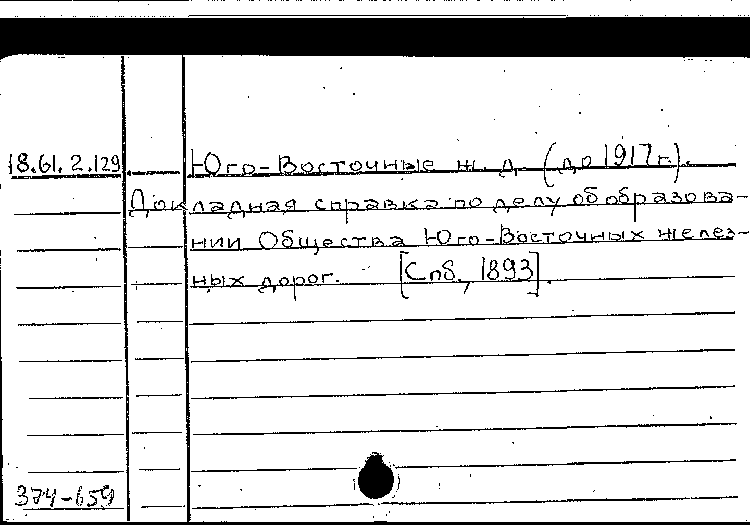 18.61.2.129 Юго-Восточные ж. д. (до 1917 г.).
Докладная справка по делу об образова-
нии Общества Юго-Восточных желез-
ных дорог. [Спб., 1893].
374-659